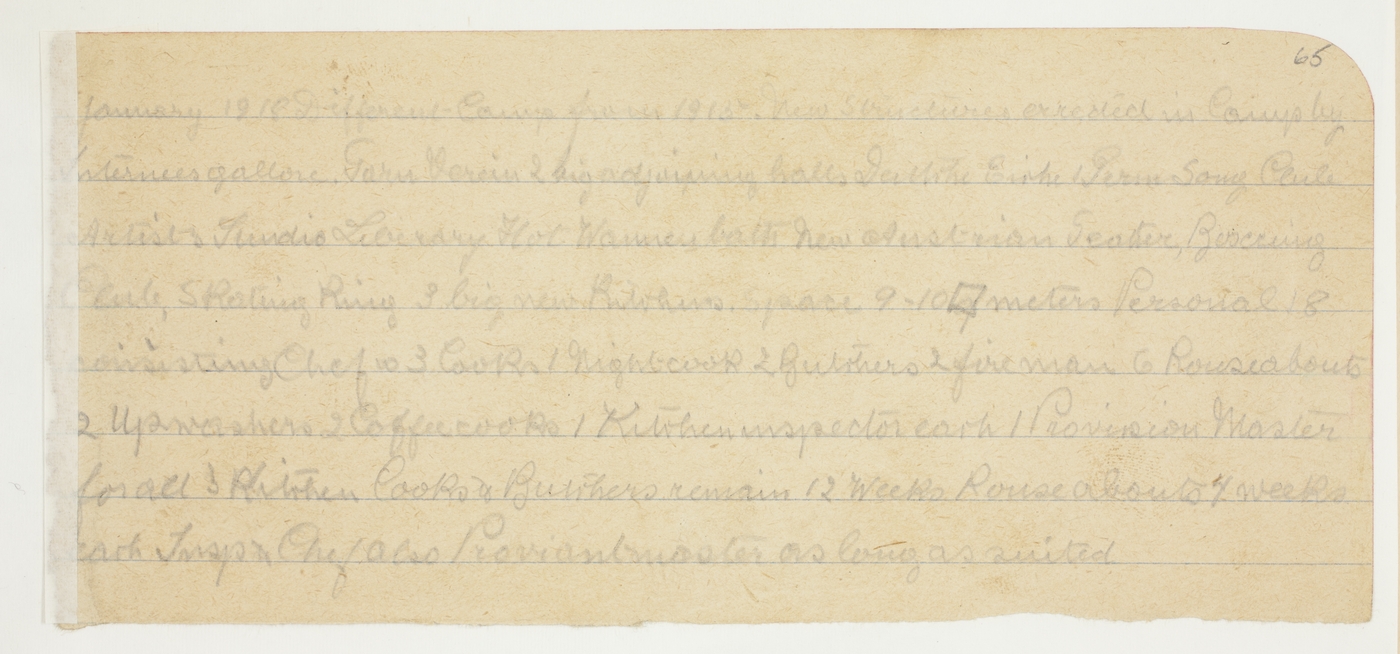 65
January 1918 Different Camp from 1915. New Structures errected in Camp by
Internees gallore. Torn Verein 2 big adjoining halls Deutshe Eiche 1 Perm Song Club
Artist's Studio Liberary Hot Wannen bath New Austrian Teater, Boxcing
Club, Skating Ring 3 big new Kitchens. Space 9-10 meters Personal 18
consisting Chef & 3 Cooks 1 Nightcook 2 Butchers 2 fireman 6 Rouseabouts
2 Upwashers 2 Coffeecooks 1 Kitchen inspector each 1 Provision Master
for all 3 Kitchen Cooks & Butchers remain 12 Weeks Rouseabouts 4 weeks
each Insp & Chef also Proviantmaster as long as suited